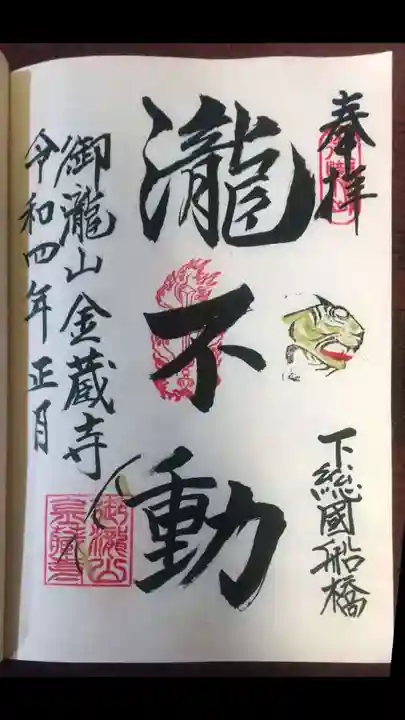 奉拝
下総國船橋
瀧不動
御瀧山金蔵寺
令和四年正月
御瀧山
金蔵寺